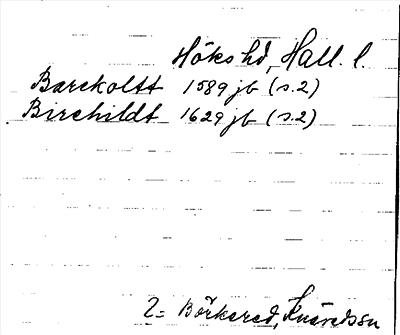 Höks hd, Hall. l.
Barckoltt 1589 jb (s. 2)
Birchildt 1629 jb (s. 2)
2 = Börkered, Knäredssn